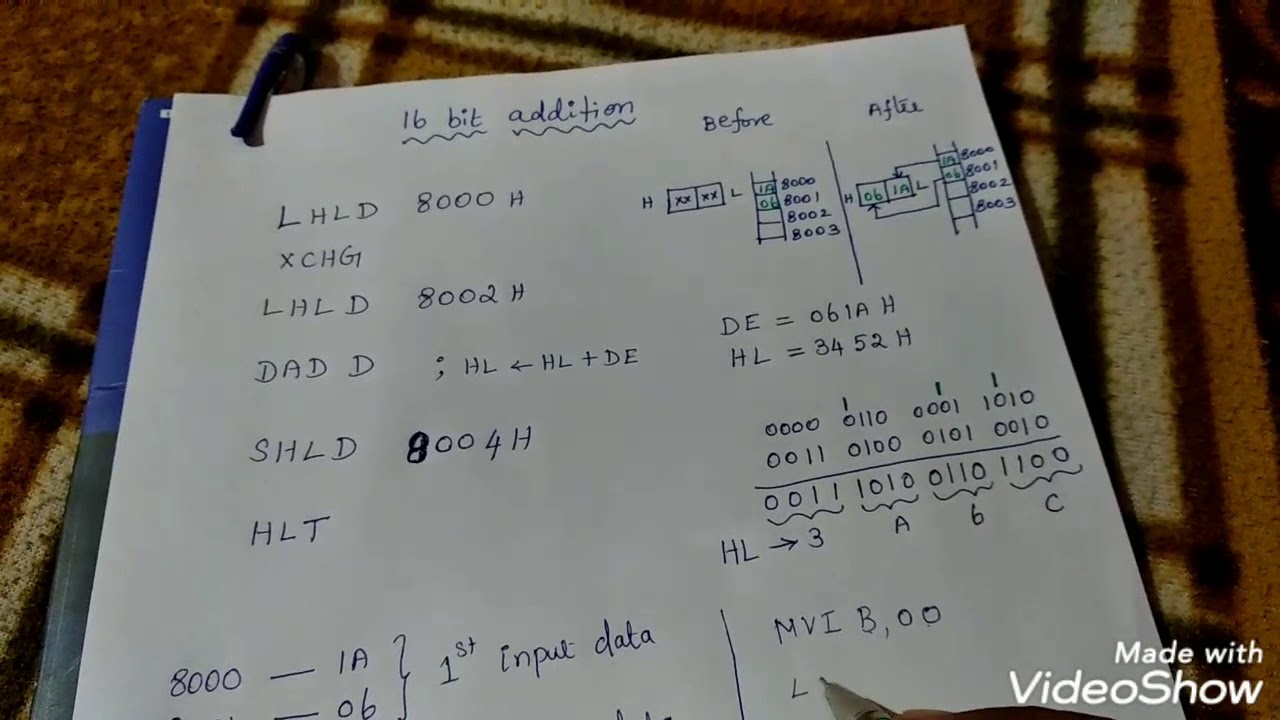 16 bit addition
Before
After
LHLD 8000 H
XCHG
LHLD 8002 H
DAD D ; HL ← HL + DE
SHLD 8004 H
HLT
H xx xx L
1A 8000
06 8001
8002
8003
H 06 1A L
1A 8000
06 8001
8002
8003
DE = 061A H
HL = 3452 H
1 1 1
0000 0110 0001 1010
0011 0100 0101 0010
0011 1010 0110 1100
HL → 3 A 6 C
8000 — 1A } 1st input data
— 06
MVI B, 00
L
Made with
VideoShow